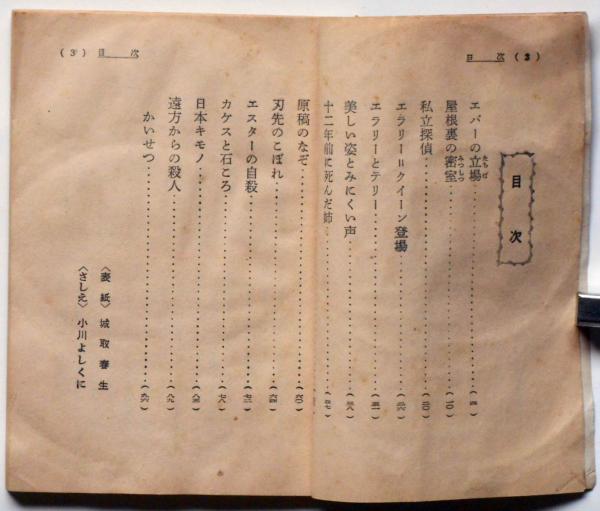 目次 (2)
目次
エバーの立場 (四)
屋根裏の密室 (一0)
私立探偵 (二0)
エラリー=クイーン登場 (二六)
エラリーとテリー (三一)
美しい姿とみにくい声 (三八)
十二年前に死んだ姉 (四七)
目次 (3)
原稿のなぞ (六0)
刃先のこぼれ (六四)
エスターの自殺 (七三)
カケスと石ころ (七八)
日本キモノ (八三)
遠方からの殺人 (八九)
かいせつ (九六)
〈表紙〉 城取春生
〈さしえ〉 小川よしくに